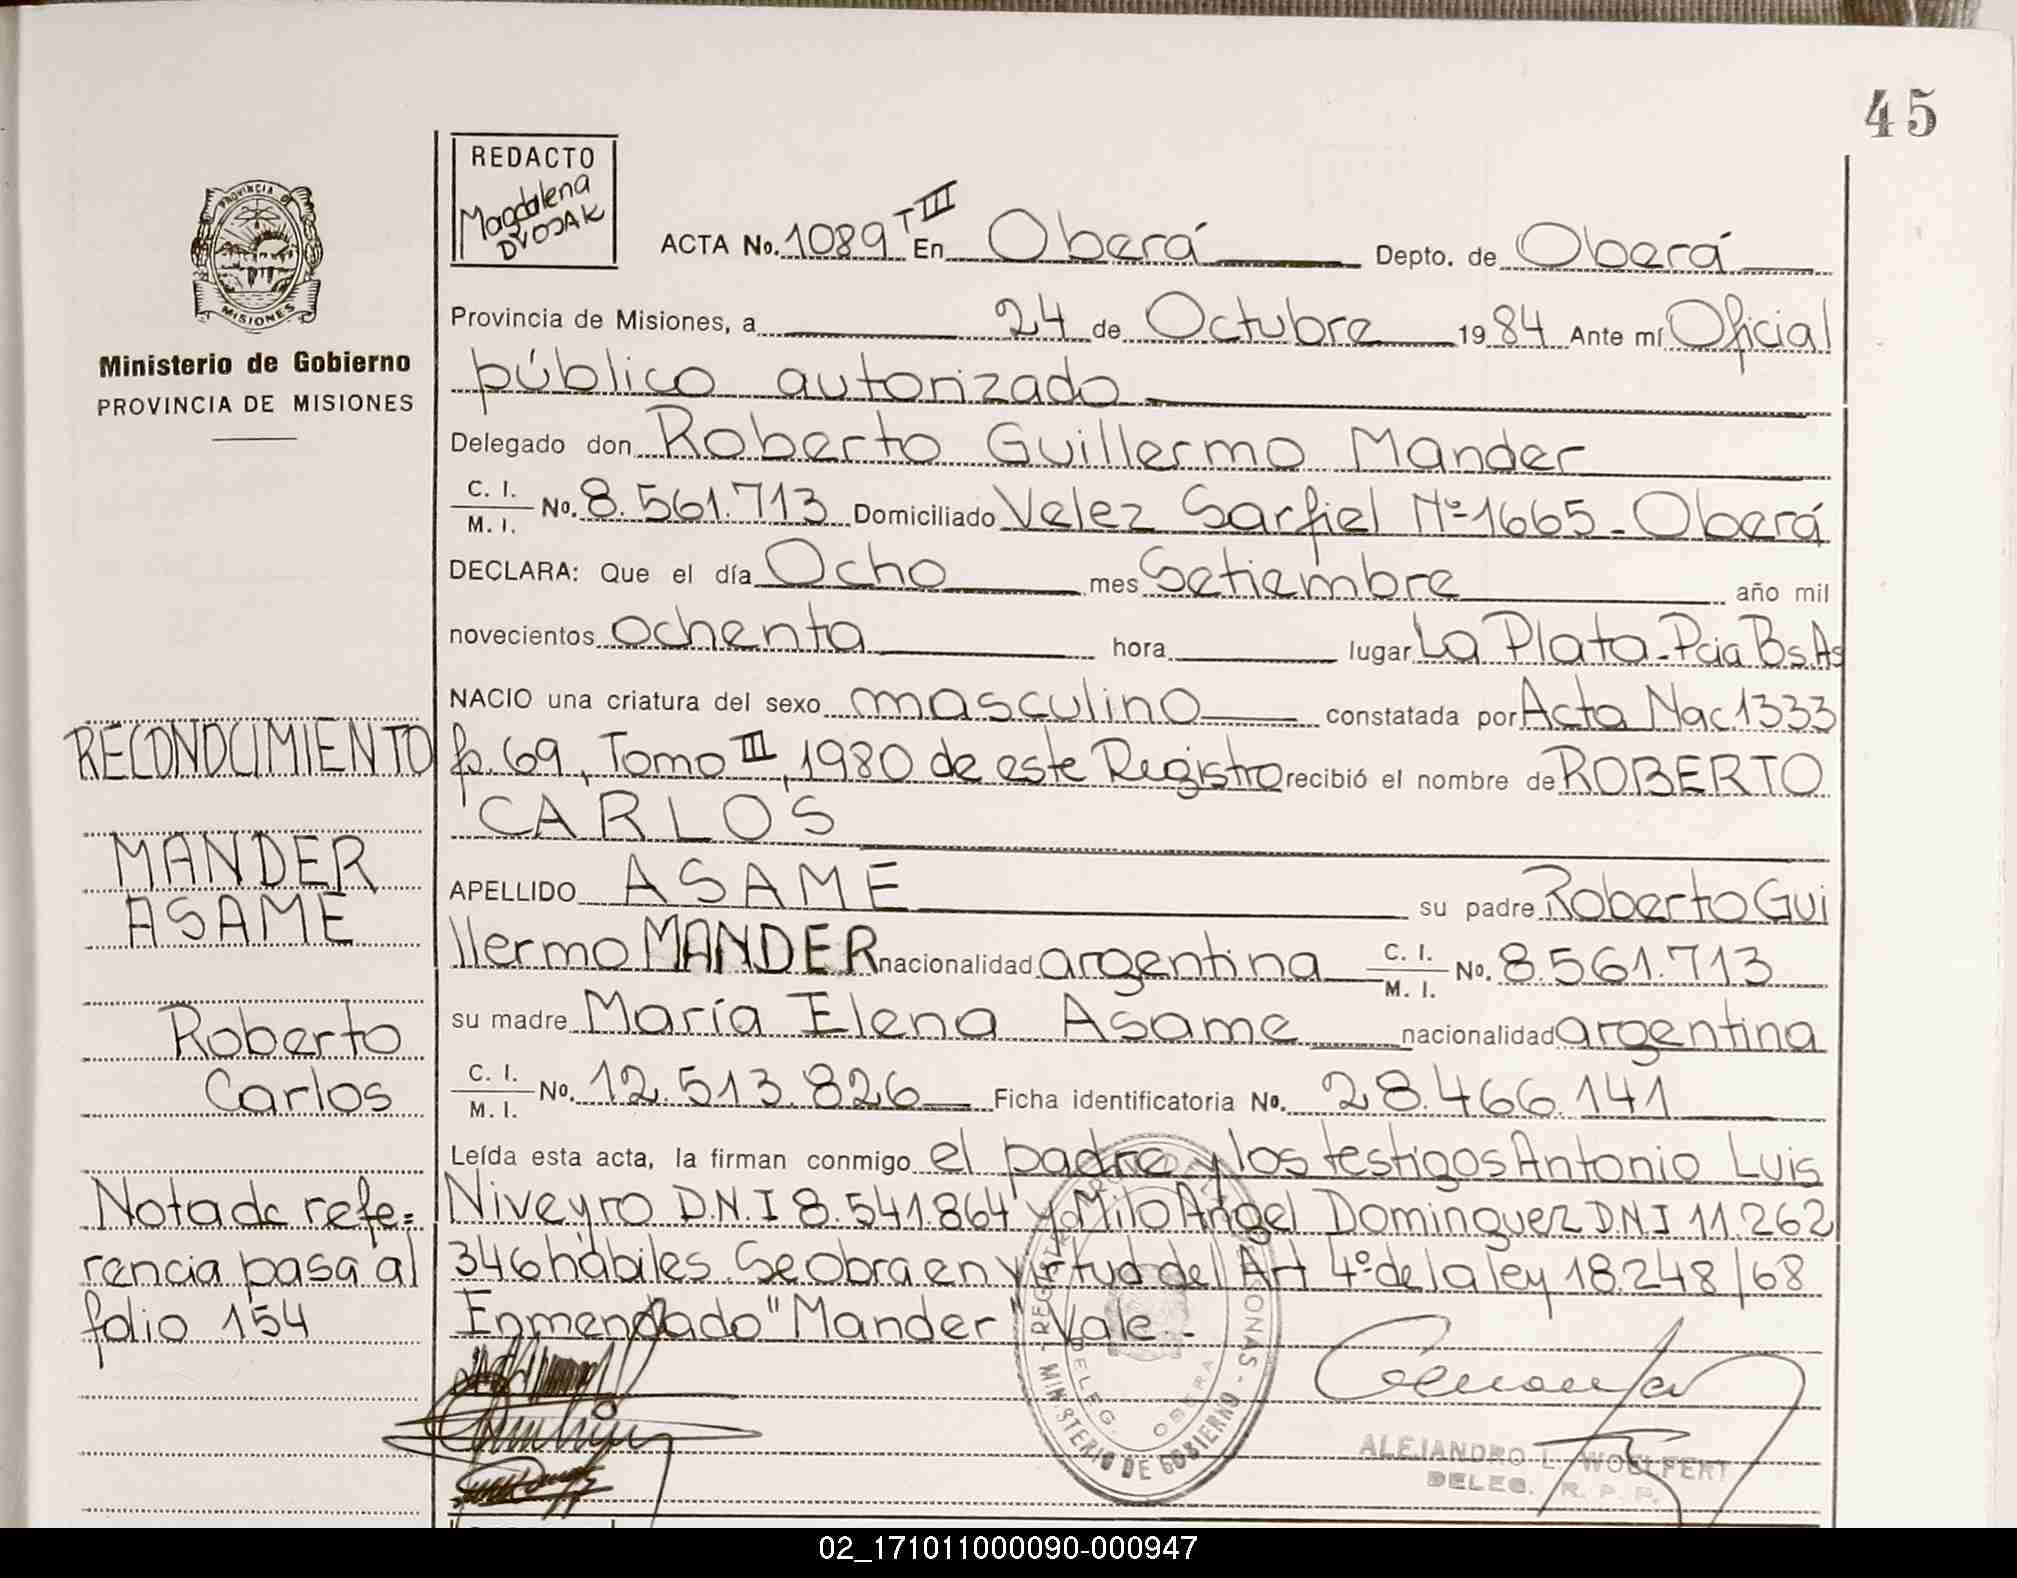 45
REDACTO
Magdalena
DVOJAK
PROVINCIA DE
MISIONES
Ministerio de Gobierno
PROVINCIA DE MISIONES
ACTA No. 1089 T III En Oberá Depto. de Oberá
Provincia de Misiones, a 24 de Octubre 1984 Ante mí Oficial
público autorizado
Delegado don Roberto Guillermo Mander
C. I. / M. I. No. 8.561.713 Domiciliado Velez Sarfiel Nº 1665 - Oberá
DECLARA: Que el día Ocho mes Setiembre año mil
novecientos ochenta hora lugar La Plata - Pcia Bs.As
NACIO una criatura del sexo masculino constatada por Acta Nac 1333
fo. 69, Tomo III, 1980 de este Registro recibió el nombre de ROBERTO
CARLOS
APELLIDO ASAME su padre Roberto Gui
llermo MANDER nacionalidad argentina C. I. / M. I. No. 8.561.713
su madre María Elena Asame nacionalidad argentina
C. I. / M. I. No. 12.513.826 Ficha identificatoria No. 28.466.141
Leída esta acta, la firman conmigo el padre y los testigos Antonio Luis
Niveyro D.N.I 8.541.864 y Milo Angel Dominguez D.N.I 11.262
346 hábiles. Se obra en virtud del Art 4º de la ley 18.248/68
Enmendado "Mander" Vale.-
RECONOCIMIENTO
MANDER
ASAME
Roberto
Carlos
Nota de refe=
rencia pasa al
folio 154
MINISTERIO DE GOBIERNO
DELEG. OBERA
ALEJANDRO L. WOELFERT
DELEG. R. P. P.
02_171011000090-000947